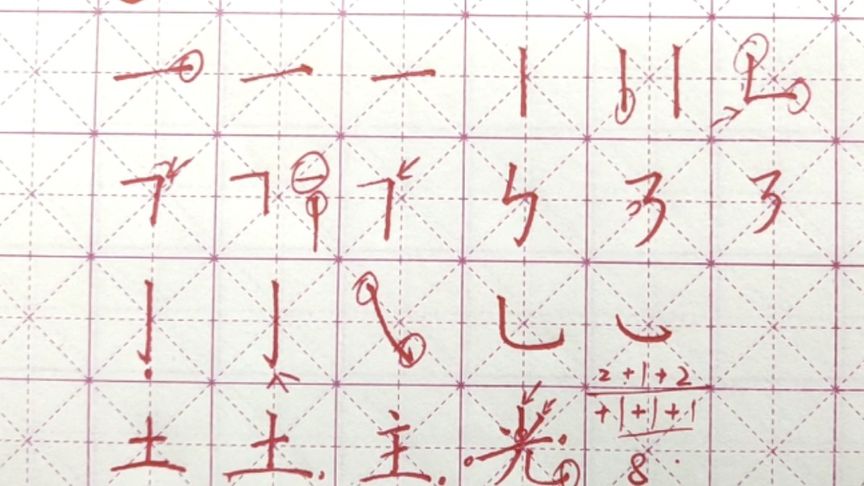 一 一 一 丨 丨 丨 𠃊
𠃍 𠃍 一 丨 𠃍 ㄣ 3 3
丨 丨 ㇏ ㇄
2+1+2
土 土 主 光 +1+1+1
8